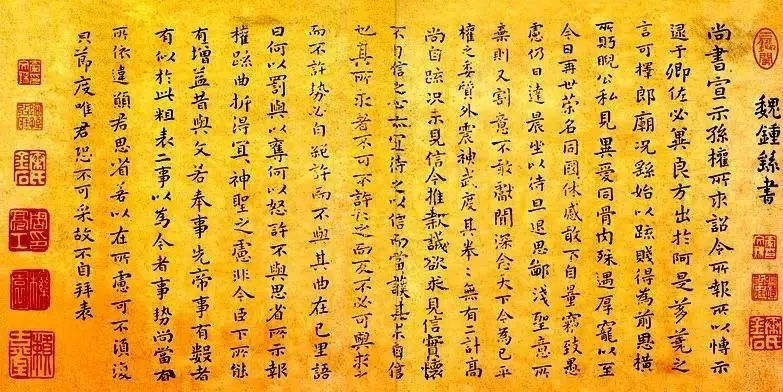 魏鍾繇書
尚書宣示孫權所求詔令所報所以博示
逮于卿佐必冀良方出於阿是芻蕘之
言可擇郎廟況繇始以疏賤得為前恩橫
所眄睨公私見異愛同骨肉殊遇厚寵以至
今日再世榮名同國休慼敢不自量竊致愚
慮仍日達晨坐以待旦退思鄙淺聖意所
棄則又割意不敢獻聞深念天下今為已平
權之委質外震神武度其拳〻無有二計高
尚自疏況未見信今推款誠欲求見信實懷
不自信之心亦宜待之以信而當護其未自信
也其所求者不可不許許之而反不必可與求之
而不許勢必自絕許而不與其曲在己里語
曰何以罰與以奪何以怒許不與思省所示報
權疏曲折得宜神聖之慮非今臣下所能
有增益昔與文若奉事先帝事有數者
有似於此粗表二事以為今者事勢尚當有
所依違願君思省若以在所慮可不須復
只節度唯君恐不可采故不自拜表